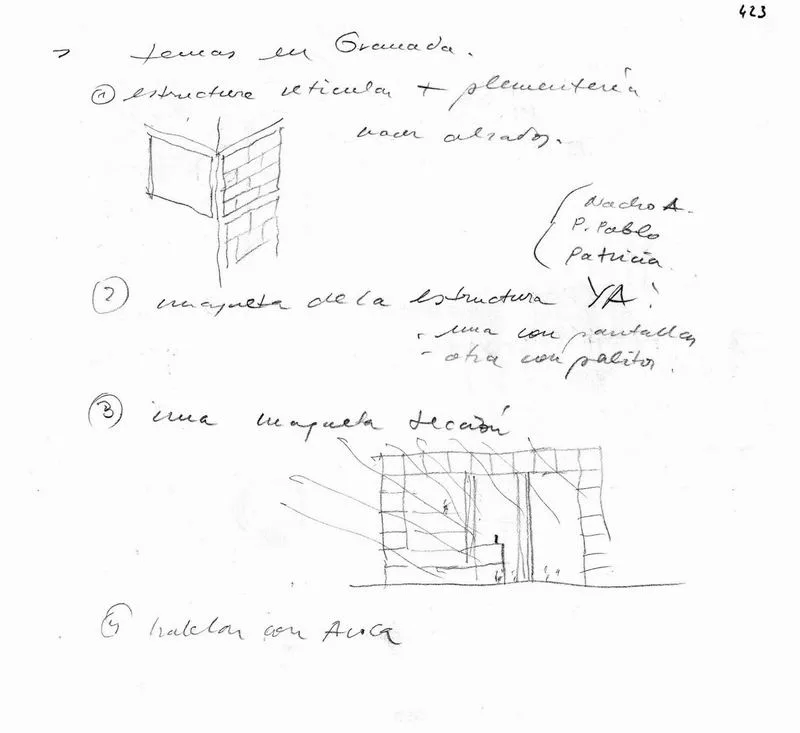 423
temas en Granada.
① estructura reticular + plementería
hacer alzados.
Nacho A.
P. Pablo
Patricia
② maqueta de la estructura YA!
- una con pantallas
- otra con palitos.
③ una maqueta sección
④ hablar con